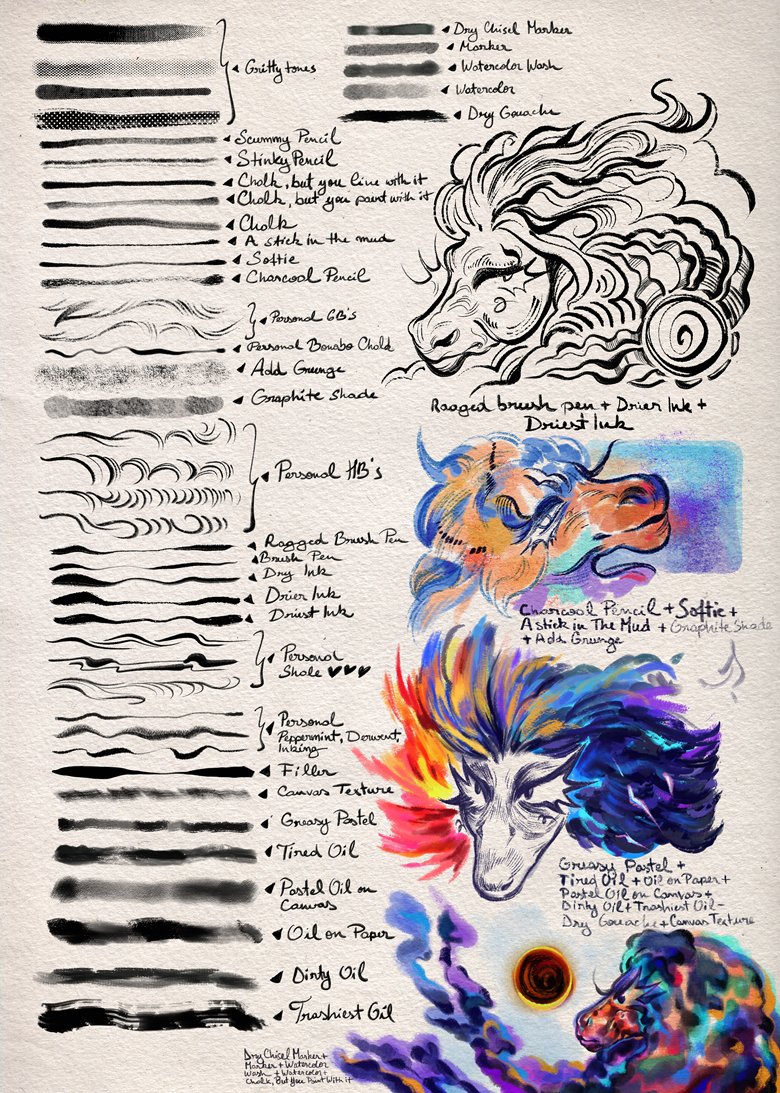 Gritty tones
Scummy Pencil
Stinky Pencil
Chalk, but you line with it
Chalk, but you paint with it
Chalk
A stick in the mud
Softie
Charcoal Pencil
Personal 6B's
Personal Bonobo Chalk
Add Grunge
Graphite Shade
Personal HB's
Ragged Brush Pen
Brush Pen
Dry Ink
Drier Ink
Driest Ink
Personal
Shale ♥♥♥
Personal
Peppermint, Derwent,
Inking
Filler
Canvas Texture
Greasy Pastel
Tired Oil
Pastel Oil on
Canvas
Oil on Paper
Dirty Oil
Trashiest Oil
Dry Chisel Marker
Marker
Watercolor Wash
Watercolor
Dry Gouache
Ragged brush pen + Drier Ink +
Driest Ink
Charcoal Pencil + Softie +
A stick in The Mud + Graphite Shade
+ Add Grunge
Greasy Pastel +
Tired Oil + Oil on Paper +
Pastel Oil on Canvas +
Dirty Oil + Trashiest Oil -
Dry Gouache + Canvas Texture
Dry Chisel Marker +
Marker + Watercolor
Wash + Watercolor +
Chalk, But You Paint With it